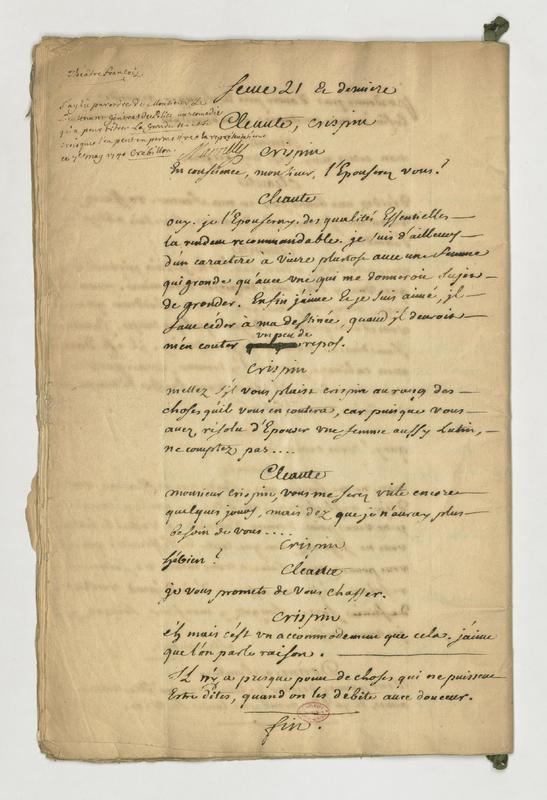 Theatre françois
J'ay lu par ordre de Monsieur le
Lieutenant general de Police une comedie
qui a pour titre La
crois que l'on peut en permettre la representation
ce may 1740 Crebillon.
Scene 21 & derniere
Cleante, crispin
Crispin
En consience, monsieur, l'Epouserez vous?
Cleante
ouy. je l'Epouseray. des qualités Essentielles
la rendent recommandable. je suis d'ailleurs
d'un caractere a vivre plustost avec une femme
qui gronde qu'avec une qui me donneroit sujet
de gronder. Enfin j'aime & je suis aimé, jl
faut céder à ma destinée, quand jl devroit
un peu de
m'en couter repos.
Crispin
mettez s'jl vous plaist crispin au rang des
choses qu'jl vous en coutera, car puisque vous
avez résolu d'Epouser une femme aussy Lutin,
ne comptez pas....
Cleante
monsieur Crispin, vous me serez utile encore
quelques jours, mais dez que je n'auray plus
besoin de vous....
Crispin
hébien?
Cléante
je vous promets de vous chasser.
Crispin
éh mais c'est un accommodement que cela. j'aime
que l'on parle raison.
Jl n'y a presque point de choses qui ne puissent
Estre dites, quand on les débite avec douceur.
fin.